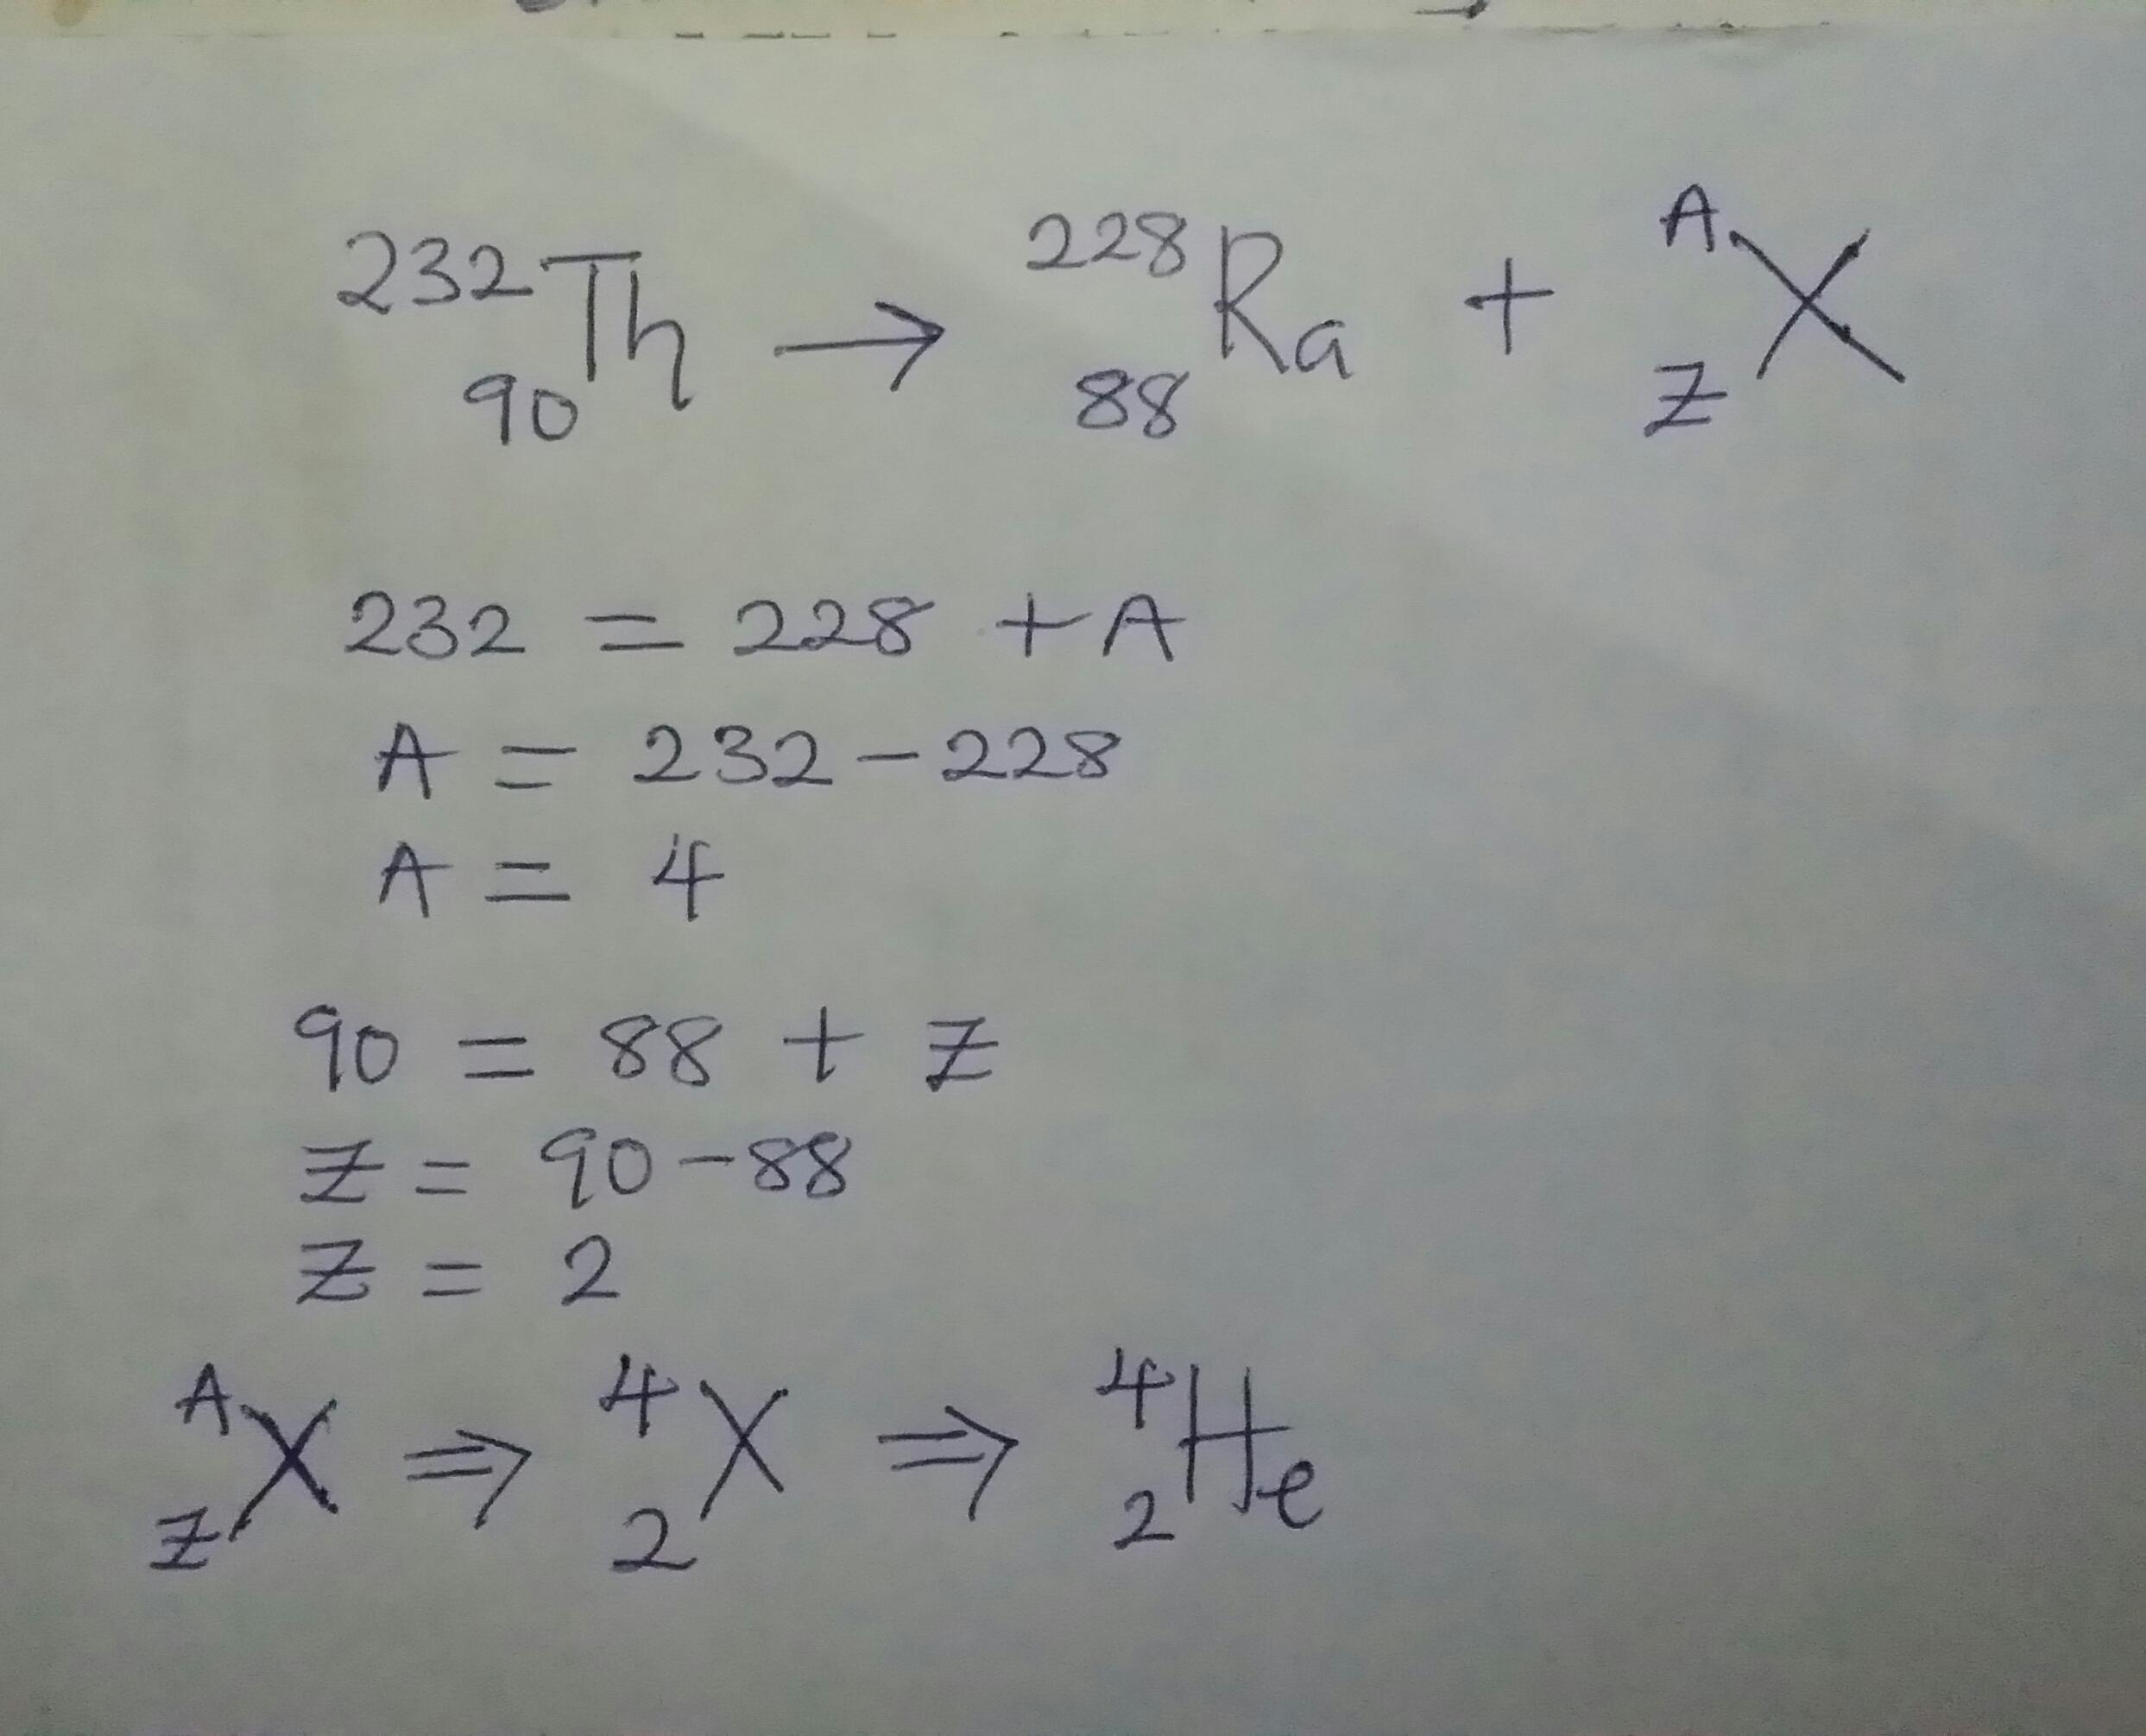 ²³²₉₀Th → ²²⁸₈₈Ra + ᴬ_Z X
232 = 228 + A
A = 232 - 228
A = 4
90 = 88 + Z
Z = 90 - 88
Z = 2
ᴬ_Z X ⇒ ⁴₂X ⇒ ⁴₂He